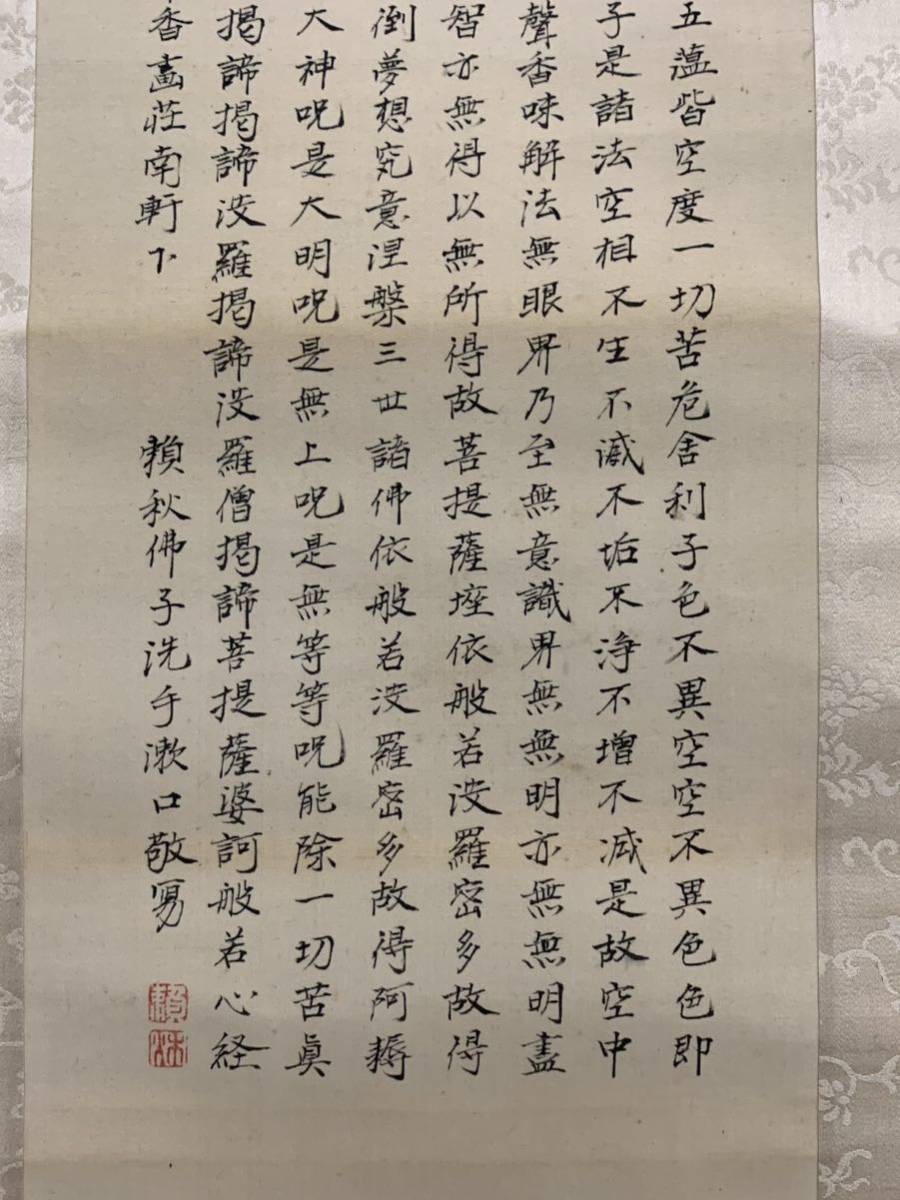 五蘊皆空度一切苦厄舍利子色不異空空不異色色即
子是諸法空相不生不滅不垢不浄不增不減是故空中
聲香味觸法無眼界乃至無意識界無無明亦無無明盡
智亦無得以無所得故菩提薩埵依般若波羅密多故得
倒夢想究意涅槃三世諸佛依般若波羅密多故得阿耨
大神呪是大明呪是無上呪是無等等呪能除一切苦真
揭諦揭諦波羅揭諦波羅僧揭諦菩提薩婆訶般若心経
香畫荘南軒下
賴秋佛子洗手漱口敬寫
賴秋